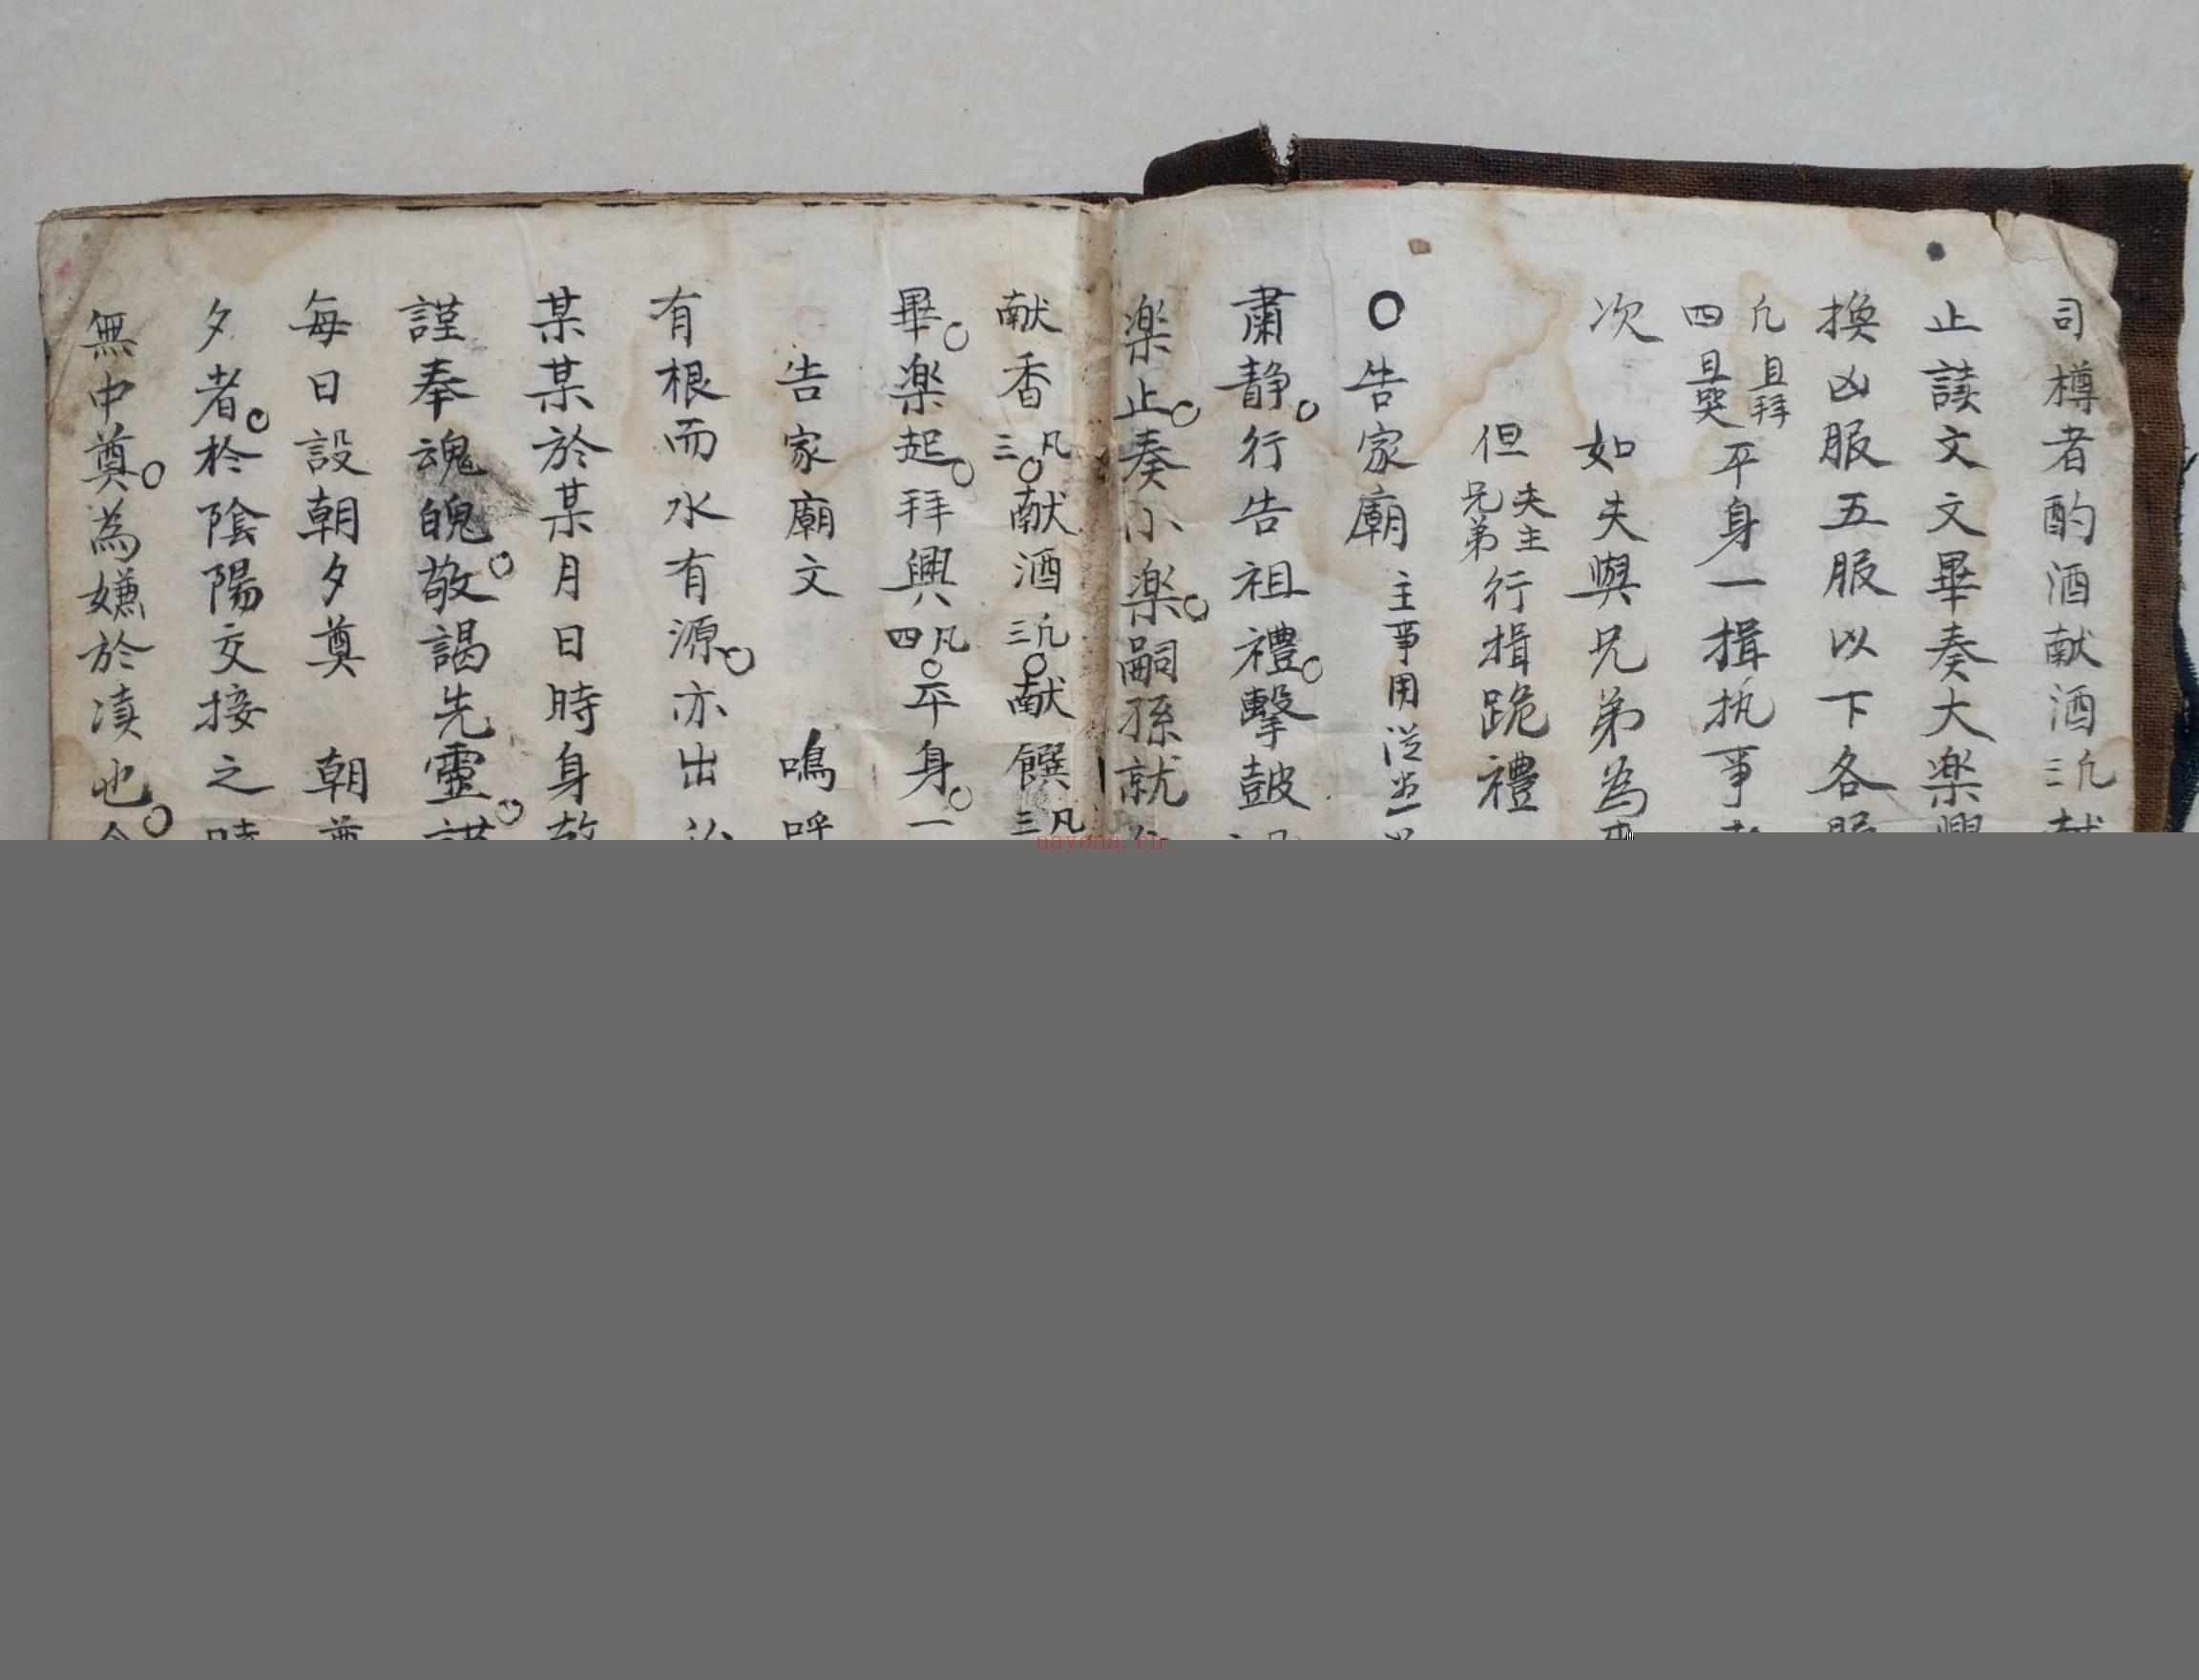 司樽者酌酒献酒三凢献
止讀文文畢奏大楽興
換凶服五服以下各服
凢且拜四且哭平身一揖执事
次 如夫與兄弟為
但夫主兄弟行揖跪禮
〇告家廟 主事用
肅静。行告祖禮。擊鼓
楽止。奏小楽。嗣孫就
献香三凡。献酒三凢。献饌三凡
畢。楽起。拜興四凡。平身。一
告家廟文 鳴呼
有根而水有源。亦出
某某於某月日時身敬
謹奉魂魄。敬謁先靈。謹
每日設朝夕奠 朝奠
夕者。於陰陽交接之時
無中奠。為嫌於凟也。
nayona.cn